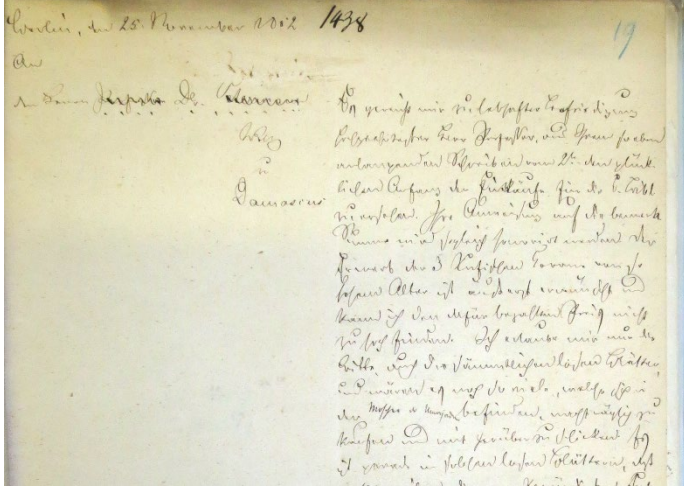 Berlin, den 25. November 1852
1438
19
An
den Herrn Dr.
in
Damascus
Es gereicht mir zu lebhafter Befriedigung
hochgeehrtester Herr Professor, aus Ihrem so eben
anlangenden Schreiben vom 2t. den glück-
lichen Anfang der Einkäufe für die k. Bibl
zu ersehen. Ihre Anweisung auf die bemerkte
Summe wird sogleich honorirt werden. Der
Erwerb der 3 Kufischen Korane von so
hohem Alter ist äußerst erwünscht und
kann ich den dafür bezahlten Preis nicht
zu hoch finden. Ich erlaube mir nur die
Bitte, auch die sämmtlichen losen Blätter,
und wären es noch so viele, welche sich in
der befinden, nachträglich zu
kaufen und mir herüber zu schicken. Es
ist gerade in solchen losen Blättern, daß